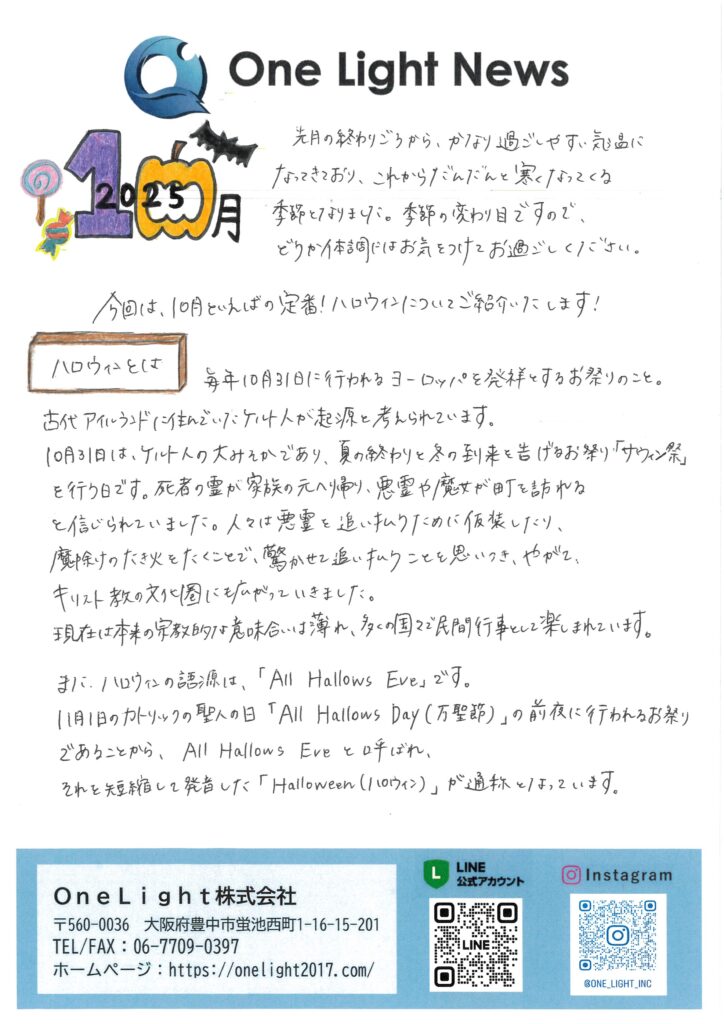 One Light News
2025
10月
先月の終わりごろから、かなり過ごしやすい気温に
なってきており、これからだんだんと寒くなってくる
季節となりました。季節の変わり目ですので、
どうか体調にはお気をつけてお過ごしください。
今回は、10月といえばの定番！ハロウィンについてご紹介いたします！
ハロウィンとは
毎年10月31日に行われるヨーロッパを発祥とするお祭りのこと。
古代アイルランドに住んでいたケルト人が起源と考えられています。
10月31日は、ケルト人の大みそかであり、夏の終わりと冬の到来を告げるお祭り「サウィン祭」
を行う日です。死者の霊が家族の元へ帰り、悪霊や魔女が町を訪れる
と信じられていました。人々は悪霊を追い払うために仮装したり、
魔除けのたき火をたくことで、驚かせて追い払うことを思いつき、やがて、
キリスト教の文化圏にも広がっていきました。
現在は本来の宗教的な意味合いは薄れ、多くの国々で民間行事として楽しまれています。
また、ハロウィンの語源は、「All Hallows Eve」です。
11月1日のカトリックの聖人の日「All Hallows Day(万聖節)」の前夜に行われるお祭り
であることから、All Hallows Eve と呼ばれ、
それを短縮して発音した「Halloween(ハロウィン)」が通称となっています。
OneLight株式会社
〒560-0036 大阪府豊中市蛍池西町1-16-15-201
TEL/FAX：06-7709-0397
ホームページ：https://onelight2017.com/
LINE
公式アカウント
LINE
Instagram
@ONE_LIGHT_INC